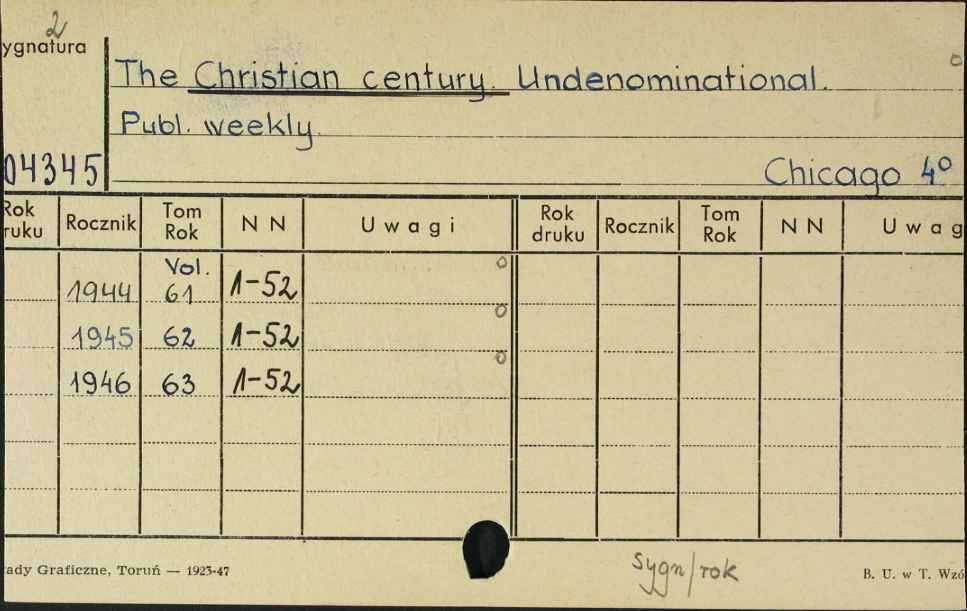 2
ygnatura
The Christian century. Undenominational.
Publ. weekly.
04345
Chicago 4°
Rok druku Rocznik Tom Rok N N U w a g i Rok druku Rocznik Tom Rok N N U w a g
Vol.
1944 61 1-52
1945 62 1-52
1946 63 1-52
sygn/rok
ady Graficzne, Toruń — 1923-47 B. U. w T. Wzó